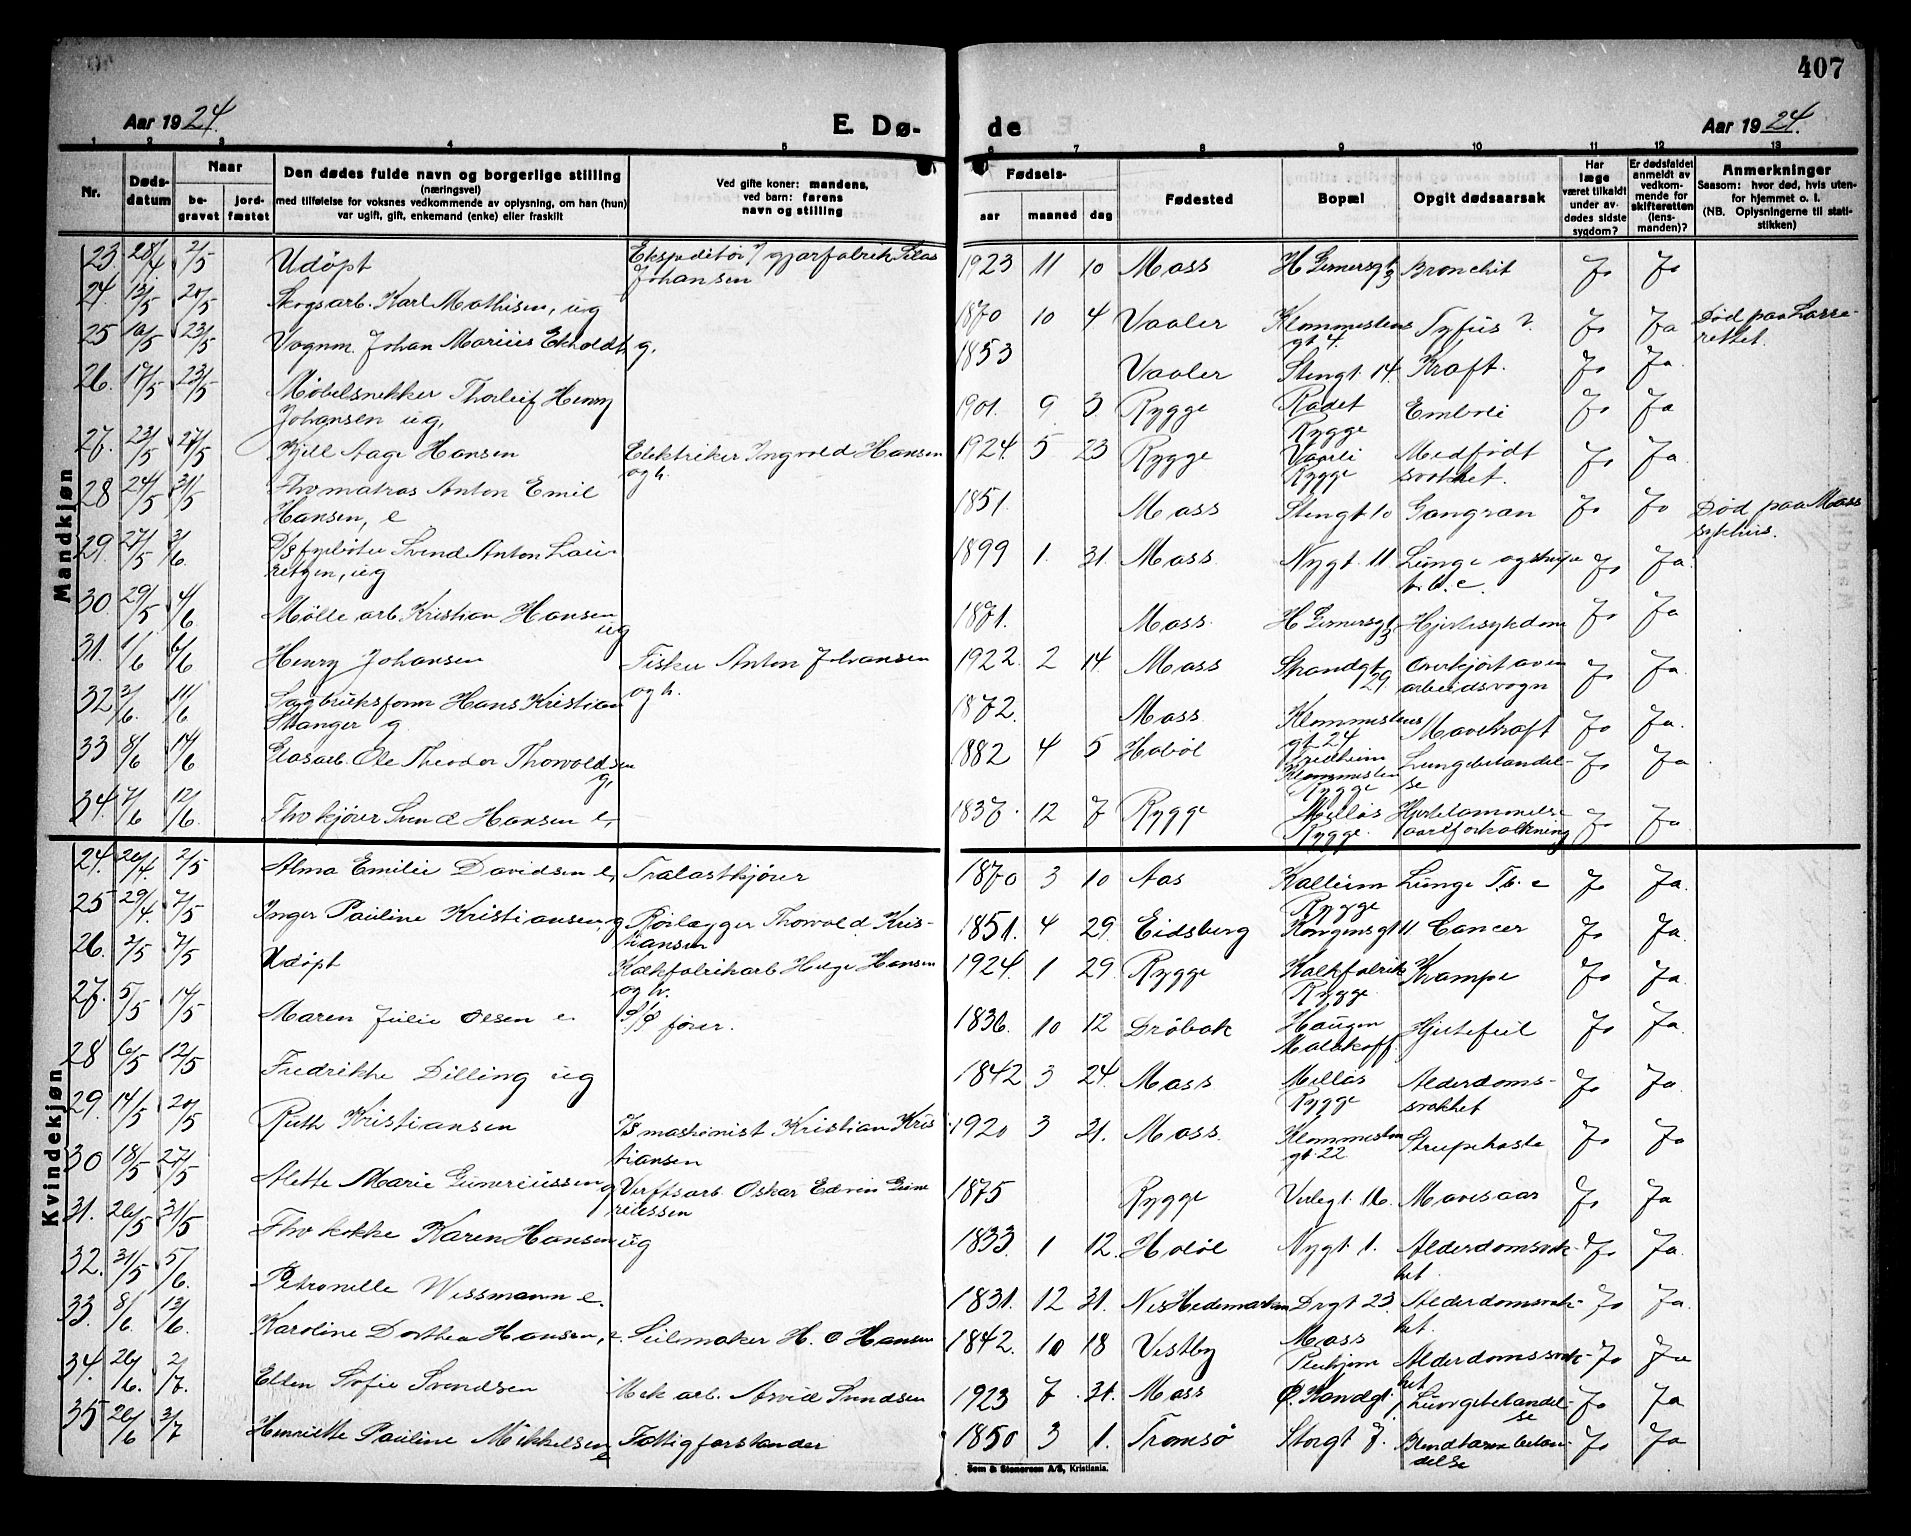 407
Aar 1924.
E. Dø-
de
Aar 1924.
1 2 3 4 5 6 7 8 9 10 11 12 13
Nr.
Døds-
datum
Naar
be-
gravet
jord-
fæstet
Den dødes fulde navn og borgerlige stilling
(næringsvei)
med tilføielse for voksnes vedkommende av oplysning, om han (hun)
var ugift, gift, enkemand (enke) eller fraskilt
Ved gifte koner: mandens,
ved barn: farens
navn og stilling
Fødsels-
aar maaned dag
Fødested
Bopæl
Opgit dødsaarsak
Har
læge
været tilkaldt
under av-
dødes sidste
sygdom?
Er dødsfaldet
anmeldt av
vedkom-
mende for
skifteretten
(lens-
manden)?
Anmerkninger
Saasom: hvor død, hvis uten-
for hjemmet o. l.
(NB. Oplysningerne til stati-
stikken)
Mandkjøn
23 28/4 2/5 Udøpt Johansen 1923 11 10 Moss H Gernersgt 3 Bronchit Ja Ja
24 13/5 20/5 Skogsarb. Karl Mathisen, ug 1870 10 4 Vaaler Klommestens gt 4. Tyfus ? Ja Ja Død paa Lasse-
rettet.
25 10/5 23/5 Vognm. Johan Marius Ekholdt g. 1853 Vaaler Stengt. 14 Kraft. Ja Ja.
26. 17/5 23/5 Møbelsnekker Thorleif Henry
Johansen ug. 1901. 9 3 Rygge Rygge Emboli Ja Ja
27. 23/5 27/5 Kjell Aage Hansen Elektriker Ingvold Hansen
og h. 1924. 5 23 Rygge Vaarli Rygge Medfødt
svakhet. Ja Ja
28 24/5 31/5 Anton Emil
Hansen, e 1851. Moss Stengt 10 Gangræn Ja Ja Død paa Moss
sykehus.
29. 27/5 3/6 Svend Anton Lau-
ritzen, ug 1899 1. 31. Moss. Nygt. 11 Lunge og strupe
t.b.c. Ja Ja.
30. 29/5 4/6 Mølle arb Kristian Hansen
ug 1871. Moss. H Gernersgt 3 Hjertesykdom Ja Ja
31. 1/6 6/6 Henry Johansen Fisker Anton Johansen
og h. 1922. 2 14. Moss Strandgt 29 Overkjørt av en
arbeidsvogn Ja Ja.
32 3/6. 11/6 Sagbruksform Hans Kristian
Stanger g 1872. Moss. Klommestens
gt 24 Mavekraft Ja Ja.
33 8/6 14/6 Glasarb. Ole Theodor Thorvaldsen
g. 1882 4 5 Hobøl Klommesten
Rygge Lungebetændel-
se Ja Ja
34. 7/6 12/6. Fhv kjører Svend Hansen e. 1837. 12 7 Rygge Melløs
Rygge. Ja Ja
Kvindekjøn
24. 26/4. 2/5 Alma Emilie Davidsen e. Trælastkjører 1870 3 10 Aas Rygge Lunge Tb. c Ja Ja.
25 29/4. 7/5 Inger Pauline Kristiansen, g Rørlægger Thorvald Kris-
tiansen 1851. 4 29. Eidsberg Kongensgt 11 Cancer Ja Ja.
26. 2/5 7/5 Udøpt Kalkfabrikarb Hansen
og h. 1924. 1 29. Rygge Kalkfabrik
Rygge Krampe Ja Ja
27. 5/5 14/5 Maren Julie Olsen e. fører. 1836. 10 12 Drøbak Haugen
Malakoff Hjertefeil Ja Ja.
28 6/5 12/5 Fredrikke Dilling ug 1842 3 24. Moss Melløs
Rygge Alderdoms-
svakhet Ja Ja.
29. 14/5 20/5 Ruth Kristiansen maskinist Kristian Kris
tiansen 1920 3 21. Moss. Klommesten
gt 22 Strupehoste Ja Ja
30 18/5 27/5 Alette Marie Guneriussen g Verftsarb Oskar Edvin Gune
riussen 1875 Rygge Verlegt. 16. Mavesaar Ja Ja
31. 26/5 31/5 Fhv kokke Karen Hansen ug 1833. 1 12. Hobøl Nygt. 1. Alderdomsvak-
het. Ja Ja.
32. 31/5 5/6. Petronelle Wissmann e. 1831. 12 31. Nes Hedemarken Drgt 23. Alderdomsvak-
het. Ja Ja.
33. 8/6. 13/6 Karoline Dorthea Hansen, e. Seilmaker H. O Hansen 1842. 10 18 Vestby Moss
Pleiehjem Alderdomssvak-
het Ja Ja
34. 26/6. 2/7. Ellen Sofie Svendsen Mek arb. Arvid Svendsen 1923 7 31. Moss Lungebetændel-
se Ja Ja
35 26/6 3/7 Henriette Pauline Mikkelsen
e Fattigforstander 1850 3 1. Tromsø Storgt 7. Blindtarmbetæn-
delse Ja Ja
Sem & Stenersen A/S, Kristiania.